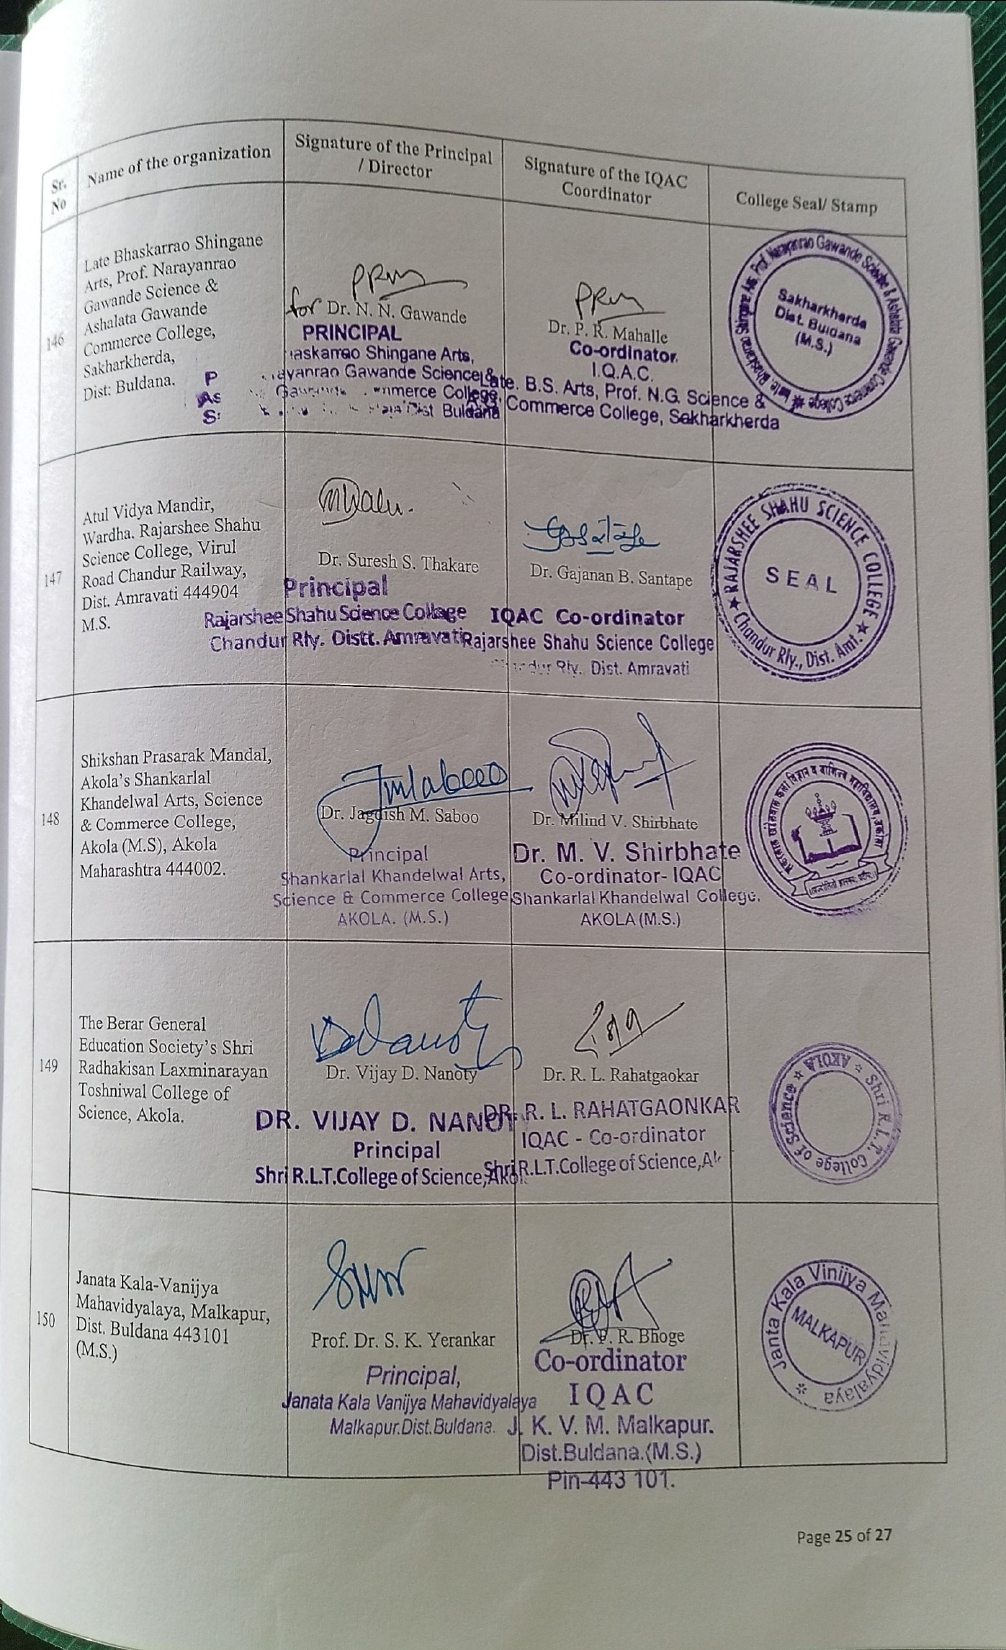 Sr. No
Name of the organization
Signature of the Principal / Director
Signature of the IQAC Coordinator
College Seal/ Stamp
146
Late Bhaskarrao Shingane
Arts, Prof. Narayanrao
Gawande Science &
Ashalata Gawande
Commerce College,
Sakharkherda,
Dist: Buldana.
for Dr. N. N. Gawande
PRINCIPAL
Shingane Arts,
Gawande Science &
College,
Dist Buldana
Dr. P. R. Mahalle
Co-ordinator
I.Q.A.C.
Late. B.S. Arts, Prof. N.G. Science &
Commerce College, Sakharkherda
Sakharkherda
Dist. Buldana
(M.S.)
147
Atul Vidya Mandir,
Wardha. Rajarshee Shahu
Science College, Virul
Road Chandur Railway,
Dist. Amravati 444904
M.S.
Dr. Suresh S. Thakare
Principal
Rajarshee Shahu Science Collage
Chandur Rly. Distt. Amravati
Dr. Gajanan B. Santape
IQAC Co-ordinator
Rajarshee Shahu Science College
Rly. Dist. Amravati
RAJARSHEE SHAHU SCIENCE COLLEGE
SEAL
Chandur Rly., Dist. Amt.
148
Shikshan Prasarak Mandal,
Akola's Shankarlal
Khandelwal Arts, Science
& Commerce College,
Akola (M.S), Akola
Maharashtra 444002.
Dr. Jagdish M. Saboo
Principal
Shankarlal Khandelwal Arts,
Science & Commerce College
AKOLA. (M.S.)
Dr. Milind V. Shirbhate
Dr. M. V. Shirbhate
Co-ordinator- IQAC
Shankarlal Khandelwal College.
AKOLA (M.S.)
149
The Berar General
Education Society's Shri
Radhakisan Laxminarayan
Toshniwal College of
Science, Akola.
Dr. Vijay D. Nanoty
DR. VIJAY D. NANOTY
Principal
Shri R.L.T.College of Science, Akola
Dr. R. L. Rahatgaokar
DR. R. L. RAHATGAONKAR
IQAC - Co-ordinator
Shri R.L.T.College of Science,
Shri R.L.T. College of Science
AKOLA
150
Janata Kala-Vanijya
Mahavidyalaya, Malkapur,
Dist. Buldana 443101
(M.S.)
Prof. Dr. S. K. Yerankar
Principal,
Janata Kala Vanijya Mahavidyalaya
Malkapur.Dist.Buldana.
Dr. P. R. Bhoge
Co-ordinator
IQAC
J. K. V. M. Malkapur.
Dist.Buldana.(M.S.)
Pin-443 101.
Janta Kala Vinijya Mahavidyalaya
MALKAPUR
Page 25 of 27